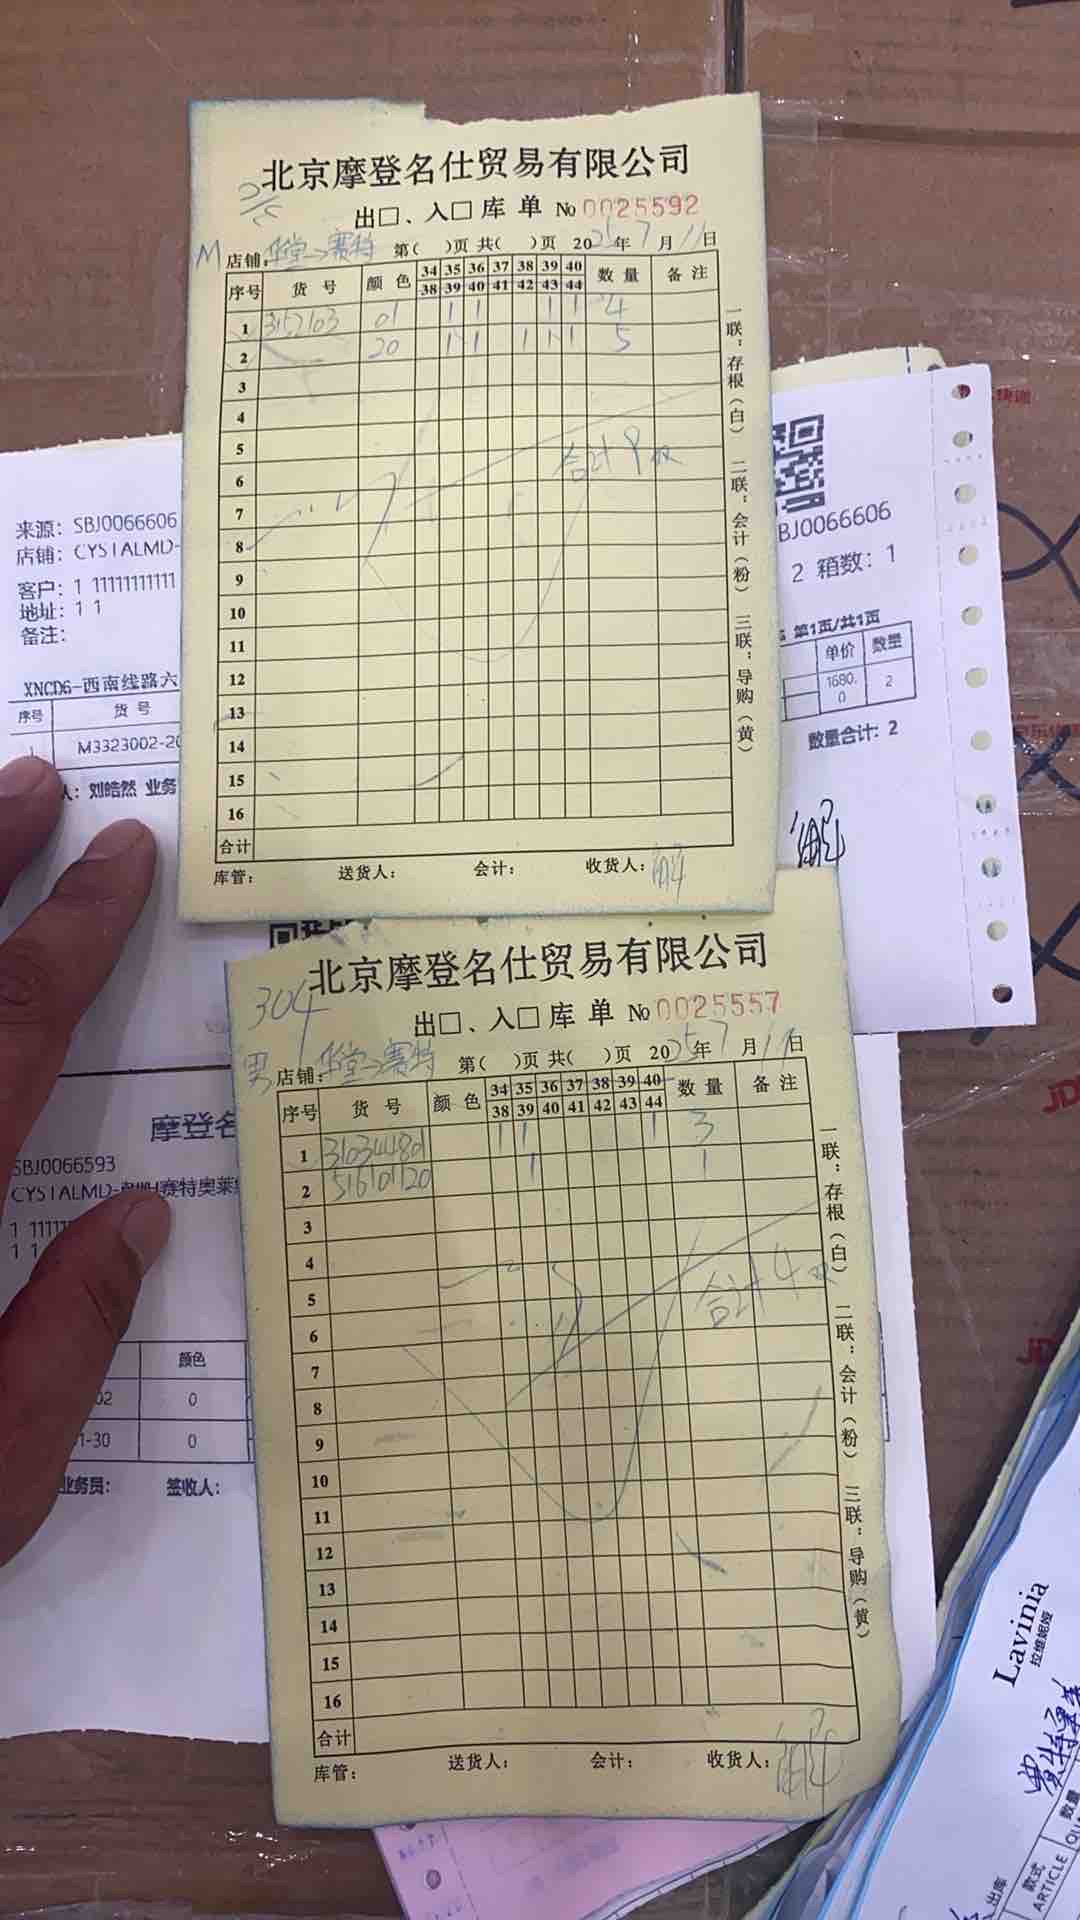 北京摩登名仕贸易有限公司
出□、入□库单 № 0025592
M 店铺：华堂→赛特 第( )页 共( )页 2025年7月11日
序号 货号 颜色 34 35 36 37 38 39 40 数量 备注
38 39 40 41 42 43 44
1 3152103 01 1 1 1 1 4
2 20 1 1 1 1 1 5
3
4
5
合计9双
6
7
8
9
10
11
12
13
14
15
16
合计
库管： 送货人： 会计： 收货人：
一联：存根（白） 二联：会计（粉） 三联：导购（黄）
来源：SBJ0066606
店铺：CYSTALMD-
客户：1 11111111111
地址：1 1
备注：
XNCD6-西南线路六
序号 货号
1 M3323002-20
人：刘皓然 业务
BJ0066606
2 箱数：1
第1页/共1页
单价 数量
1680.0 2
数量合计：2
304
北京摩登名仕贸易有限公司
出□、入□库单 № 0025557
男 店铺：华堂→赛特 第( )页 共( )页 2025年7月11日
序号 货号 颜色 34 35 36 37 38 39 40 数量 备注
38 39 40 41 42 43 44
1 310344801 1 1 1 3
2 516101120 1 1
3
4
5
合计4双
6
7
8
9
10
11
12
13
14
15
16
合计
库管： 送货人： 会计： 收货人：
一联：存根（白） 二联：会计（粉） 三联：导购（黄）
摩登名
SBJ0066593
赛特奥莱
颜色
02 0
1-30 0
业务员： 签收人：
JD
JD
Lavinia
拉维妮娅
款式 数量
ARTICLE
出库